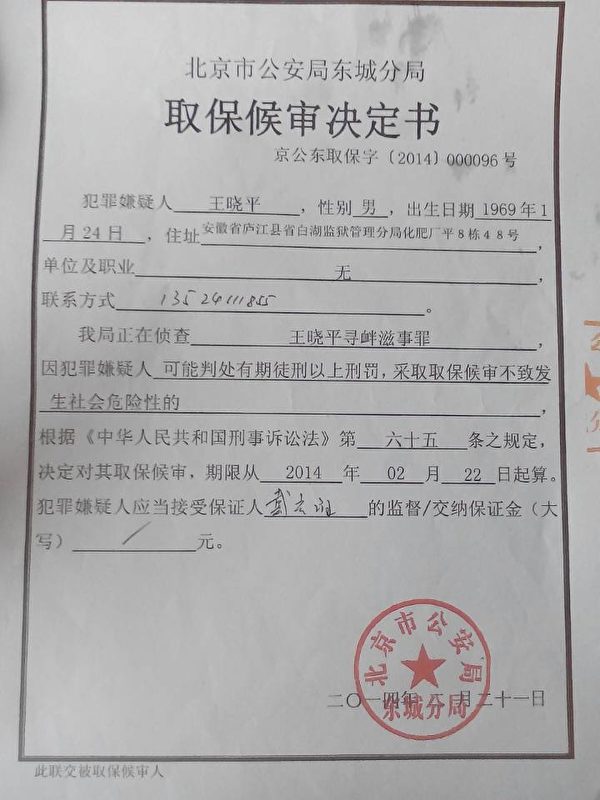 北京市公安局东城分局
取保候审决定书
京公东取保字〔2014〕000096号
犯罪嫌疑人 王晓平 ，性别 男 ，出生日期 1969年1
月24日 ，住址 安徽省庐江县省白湖监狱管理分局化肥厂平8栋48号 ，
单位及职业 无 ，
联系方式 13524111855 。
我局正在侦查 王晓平寻衅滋事罪 ，
因犯罪嫌疑人 可能判处有期徒刑以上刑罚，采取取保候审不致发
生社会危险性的 ，
根据《中华人民共和国刑事诉讼法》第 六十五 条之规定，
决定对其取保候审，期限从 2014 年 02 月 22 日起算。
犯罪嫌疑人应当接受保证人 的监督/交纳保证金（大
写） / 元。
北京市公安局
东城分局
二〇一四年二月二十一日
此联交被取保候审人